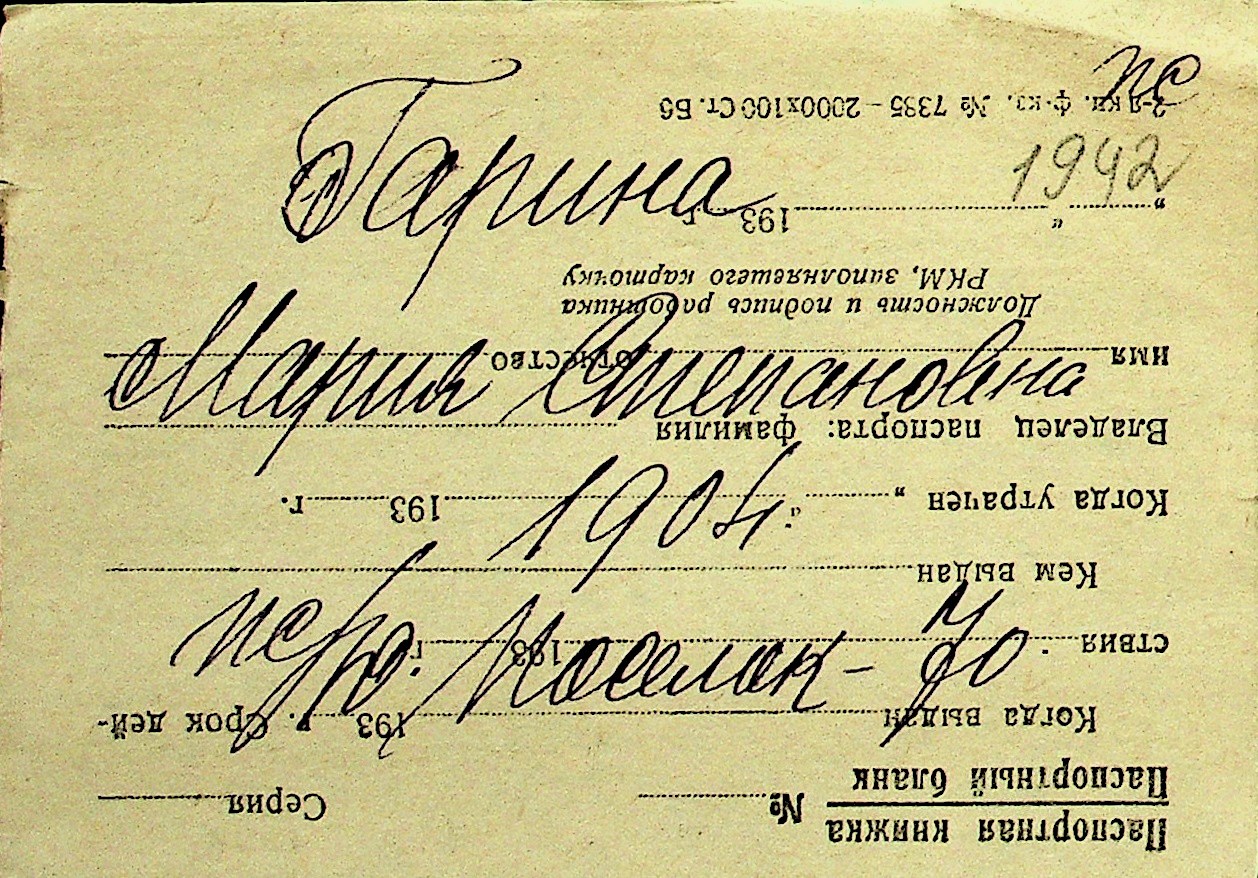 пс
Гарина
1942
Мария Степановна
1904
Поселок - 70
Паспортная книжка
Паспортный бланк № Серия
Когда выдан 193 г. Срок дей-
ствия 193 г.
Кем выдан
Когда утрачен „ “ 193 г.
Владелец паспорта: фамилия
имя отчество
Должность и подпись работника
РКМ, заполнявшего карточку
„ “ 193 г.
кн. ф-ка. № 7385 – 2000х100 Ст. Б6